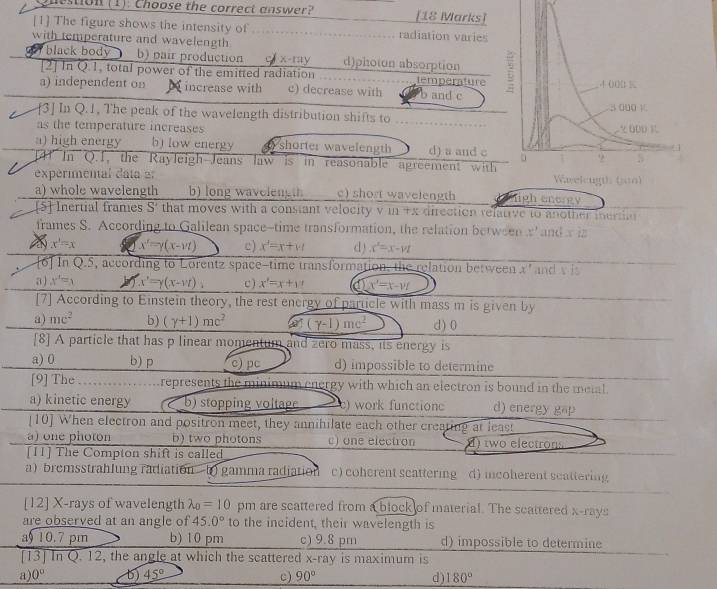 (1): Choose the correct answer?
[18 Marks]
[1] The figure shows the intensity of ........................ radiation varies
with temperature and wavelength.
a) black body b) pair production c) x-ray d) photon absorption
[2] In Q.1, total power of the emitted radiation ........................ temperature
a) independent on b) increase with c) decrease with d) b and c
[3] In Q.1, The peak of the wavelength distribution shifts to ........................
as the temperature increases
a) high energy b) low energy c) shorter wavelength d) a and c
[4] In Q.1, the Rayleigh-Jeans law is in reasonable agreement with
experimental data at
a) whole wavelength b) long wavelength c) short wavelength d) high energy
Intensity
4 000 K
3 000 K
2 000 K
0 1 2 3 4
Wavelength (µm)
[5] Inertial frames S' that moves with a constant velocity v in +x direction relative to another inertial
frames S. According to Galilean space-time transformation, the relation between x' and x is
a) x'=x b) x'=γ(x-vt) c) x'=x+vt d) x'=x-vt
[6] In Q.5, according to Lorentz space-time transformation, the relation between x' and x is
a) x'=x b) x'=γ(x-vt) c) x'=x+vt d) x'=x-vt
[7] According to Einstein theory, the rest energy of particle with mass m is given by
a) mc² b) (γ+1) mc² c) (γ-1) mc² d) 0
[8] A particle that has p linear momentum and zero mass, its energy is
a) 0 b) p c) pc d) impossible to determine
[9] The ..................represents the minimum energy with which an electron is bound in the metal.
a) kinetic energy b) stopping voltage c) work functionc d) energy gap
[10] When electron and positron meet, they annihilate each other creating at least
a) one photon b) two photons c) one electron d) two electrons
[11] The Compton shift is called
a) bremsstrahlung radiation b) gamma radiation c) coherent scattering d) incoherent scattering
[12] X-rays of wavelength λ₀ = 10 pm are scattered from a block of material. The scattered x-rays
are observed at an angle of 45.0° to the incident, their wavelength is
a) 10.7 pm b) 10 pm c) 9.8 pm d) impossible to determine
[13] In Q. 12, the angle at which the scattered x-ray is maximum is
a)0° b) 45° c) 90° d)180°